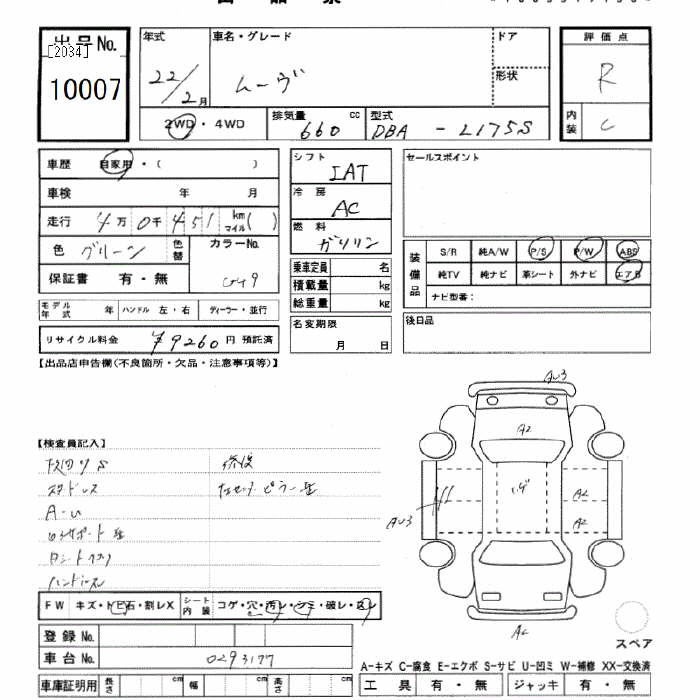 出品票
出品 No.
[2034]
10007
年式
22/2月
車名・グレード
ムーヴ
ドア
形状
評価点
R
内装
C
2WD・4WD
排気量
660 cc
型式
DBA - L175S
車歴 自家用・( )
車検 年 月
走行 4万0千451 km マイル( )
色 グリーン
色替
カラーNo.
G49
保証書 有・無
モデル年式 年 ハンドル 左・右 ディーラー・並行
リサイクル料金 ¥9260円 預託済
シフト
IAT
冷房
AC
燃料
ガソリン
乗車定員 名
積載量 kg
総重量 kg
名変期限
月 日
セールスポイント
装備品
S/R 純A/W P/S P/W ABS
純TV 純ナビ 革シート 外ナビ エアB
ナビ型番:
後日品
【出品店申告欄(不良箇所・欠品・注意事項等)】
【検査員記入】
修復
A-U
FW キズ・トビ石・割レX シート内装 コゲ・穴・汚レ・シミ・破レ・スレ
登録 No.
車台 No. 0293177
車庫証明用 長さ cm 幅 cm 高さ cm
AU3
A2
A2
A2
AU3
スペア
A-キズ C-腐食 E-エクボ S-サビ U-凹ミ W-補修 XX-交換済
工具 有・無 ジャッキ 有・無